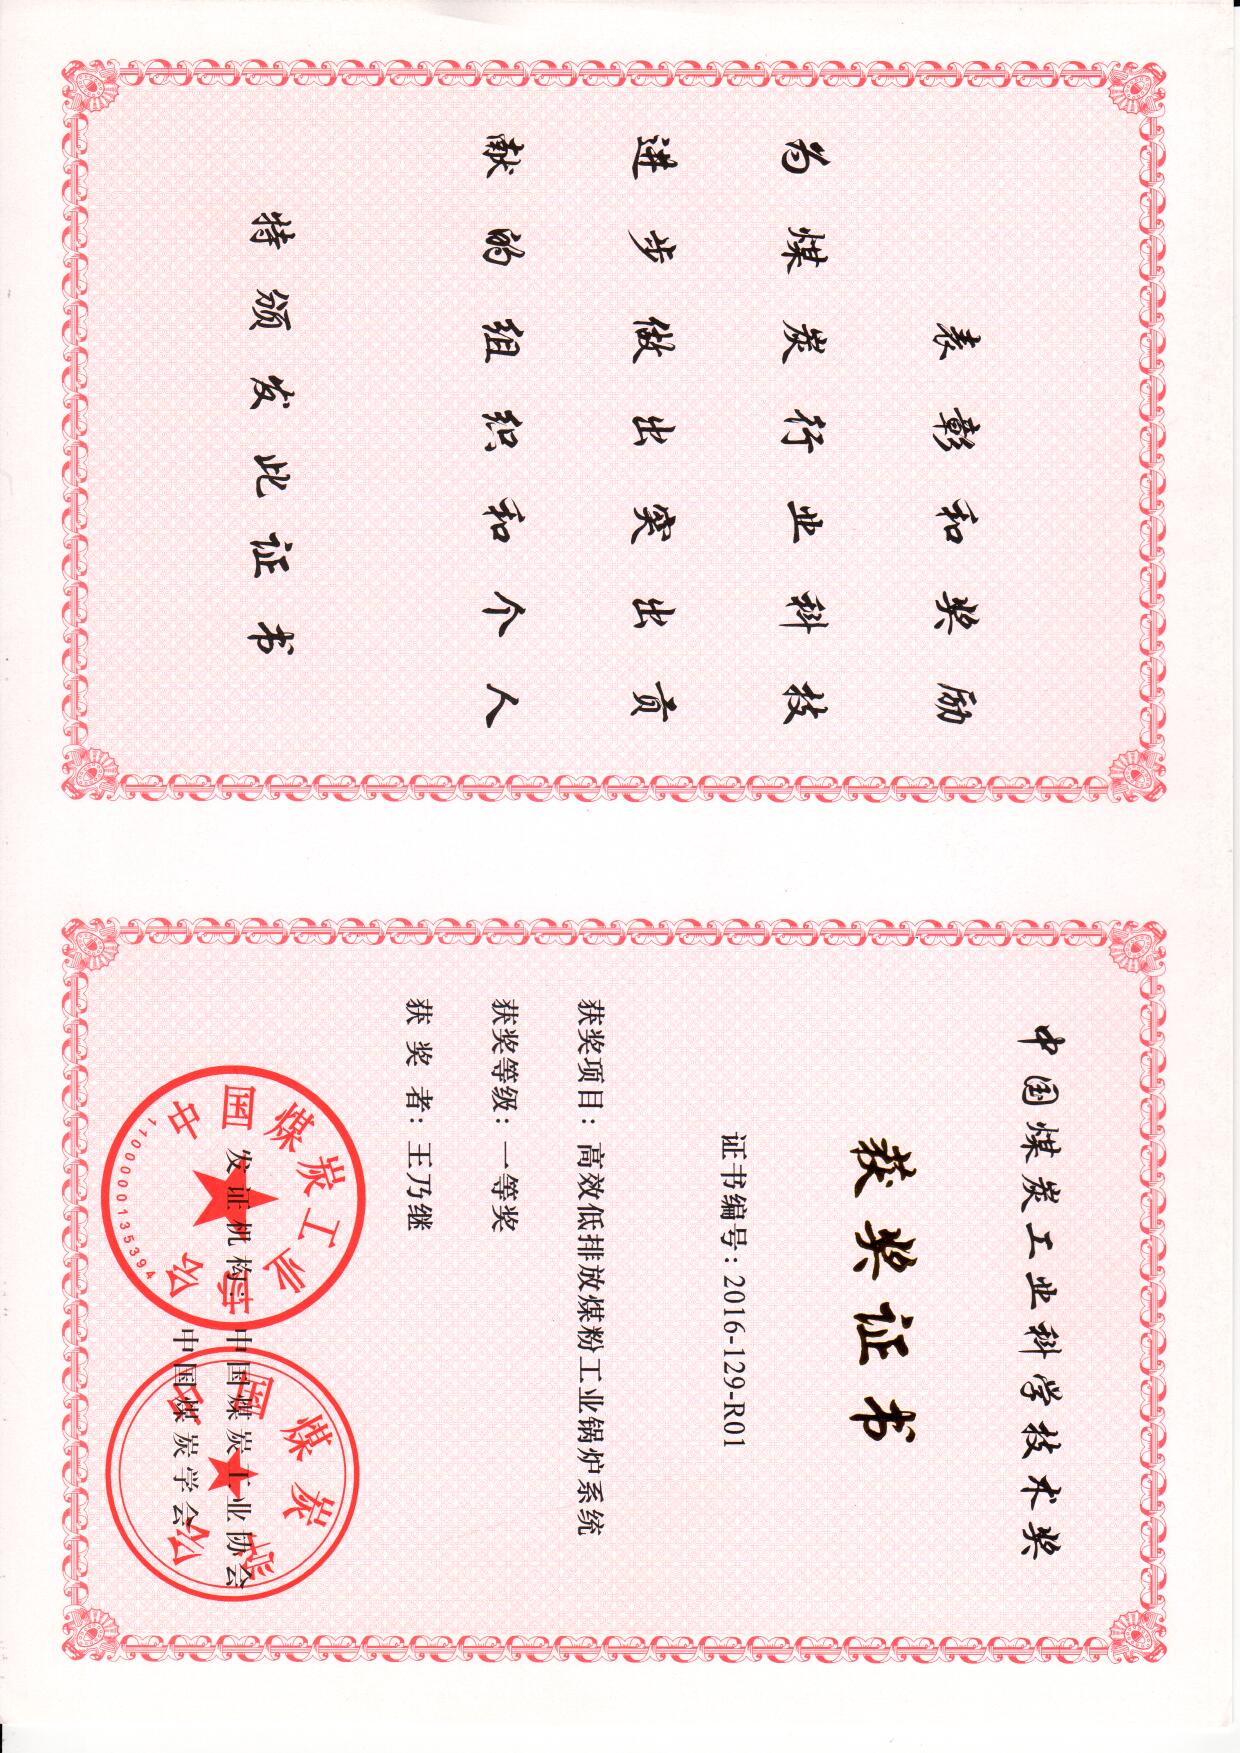 表彰和奖励
为煤炭行业科技
进步做出突出贡
献的组织和个人
特颁发此证书
中国煤炭工业科学技术奖
获奖证书
证书编号：2016-129-R01
获奖项目：高效低排放煤粉工业锅炉系统
获奖等级：一等奖
获 奖 者：王乃继
发证机构：中国煤炭工业协会
中国煤炭学会
中国煤炭工业协会
1100000135394
中国煤炭学会